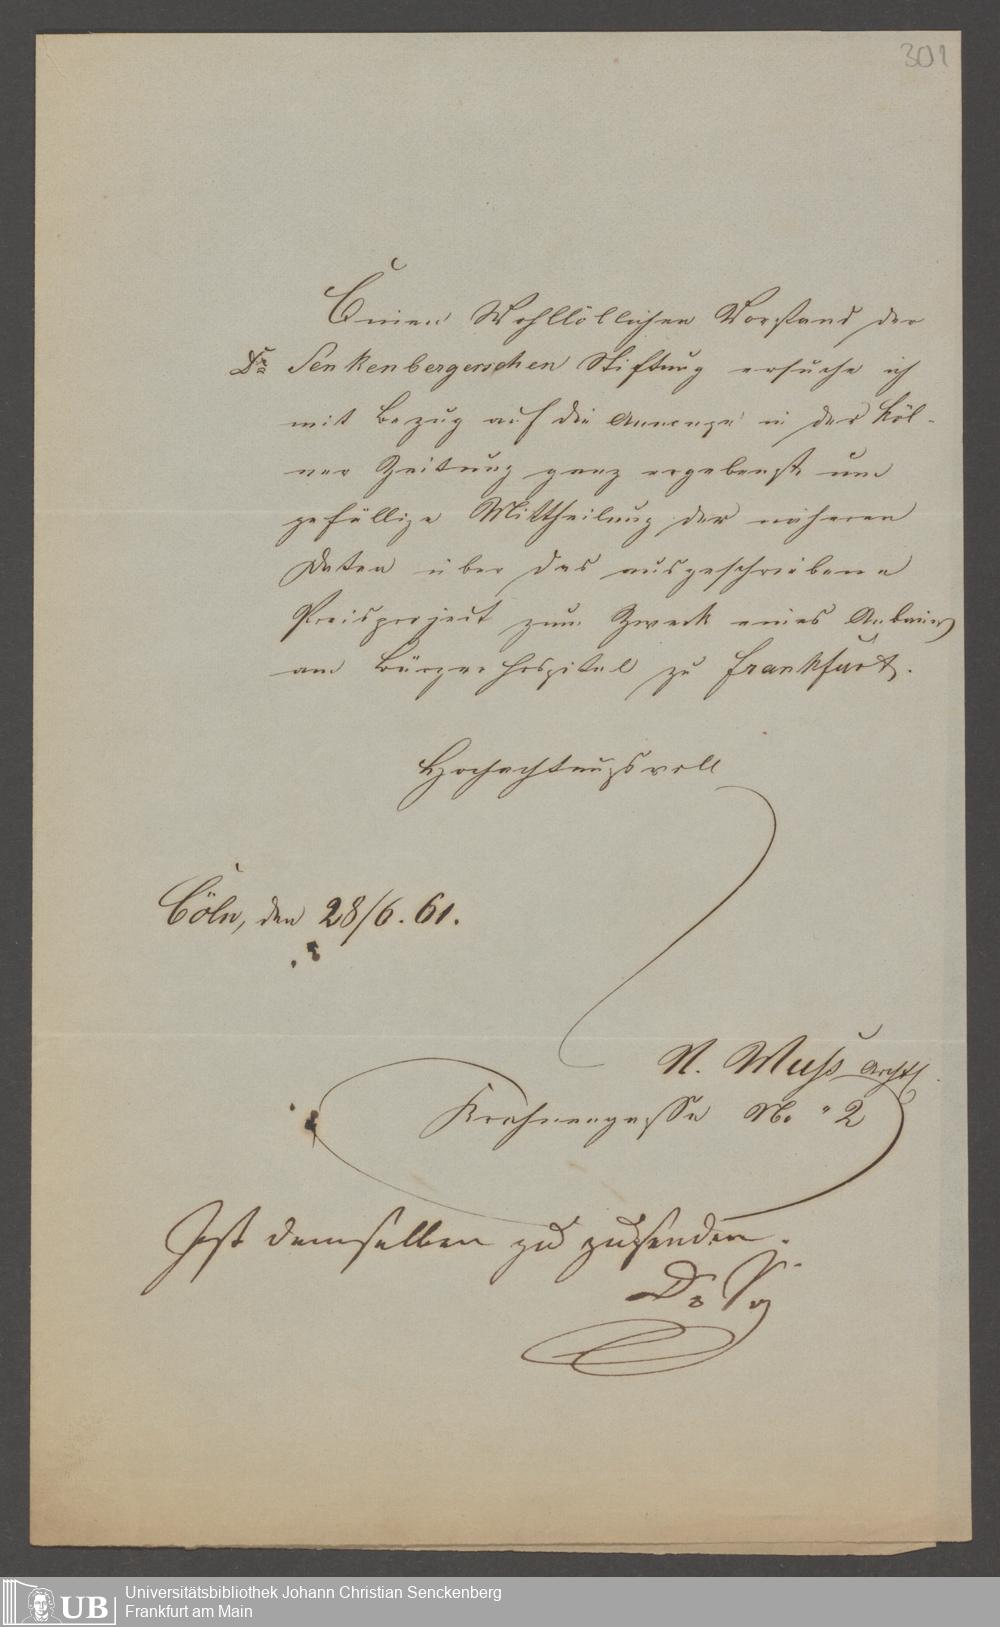 301
Einen Wohllöblichen Vorstand der
Dr Senkenbergerschen Stiftung ersuche ich
mit Bezug auf die Annonze in der Köl-
ner Zeitung ganz ergebenst um
gefällige Mittheilung der näheren
Daten über das ausgeschriebene
Preisproject zum Zweck eines Anbaues
am Bürgerhospital zu Frankfurt.
Hochachtungsvoll
Cöln, den 28/6. 61.
N. Muhs Archt.
Krahnengasse No. 2
Ist demselben zu zusenden.
Dr
UB Universitätsbibliothek Johann Christian Senckenberg
Frankfurt am Main